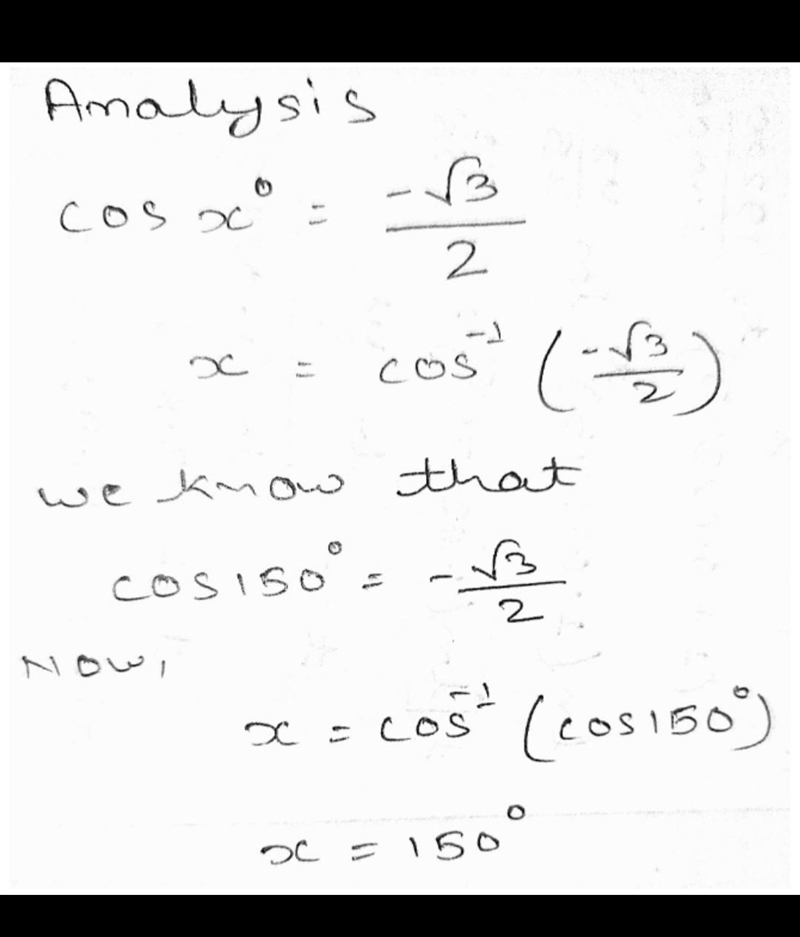 Analysis
cos x° = -√3/2
x = cos⁻¹ (-√3/2)
we know that
cos 150° = -√3/2
Now,
x = cos⁻¹ (cos 150°)
x = 150°